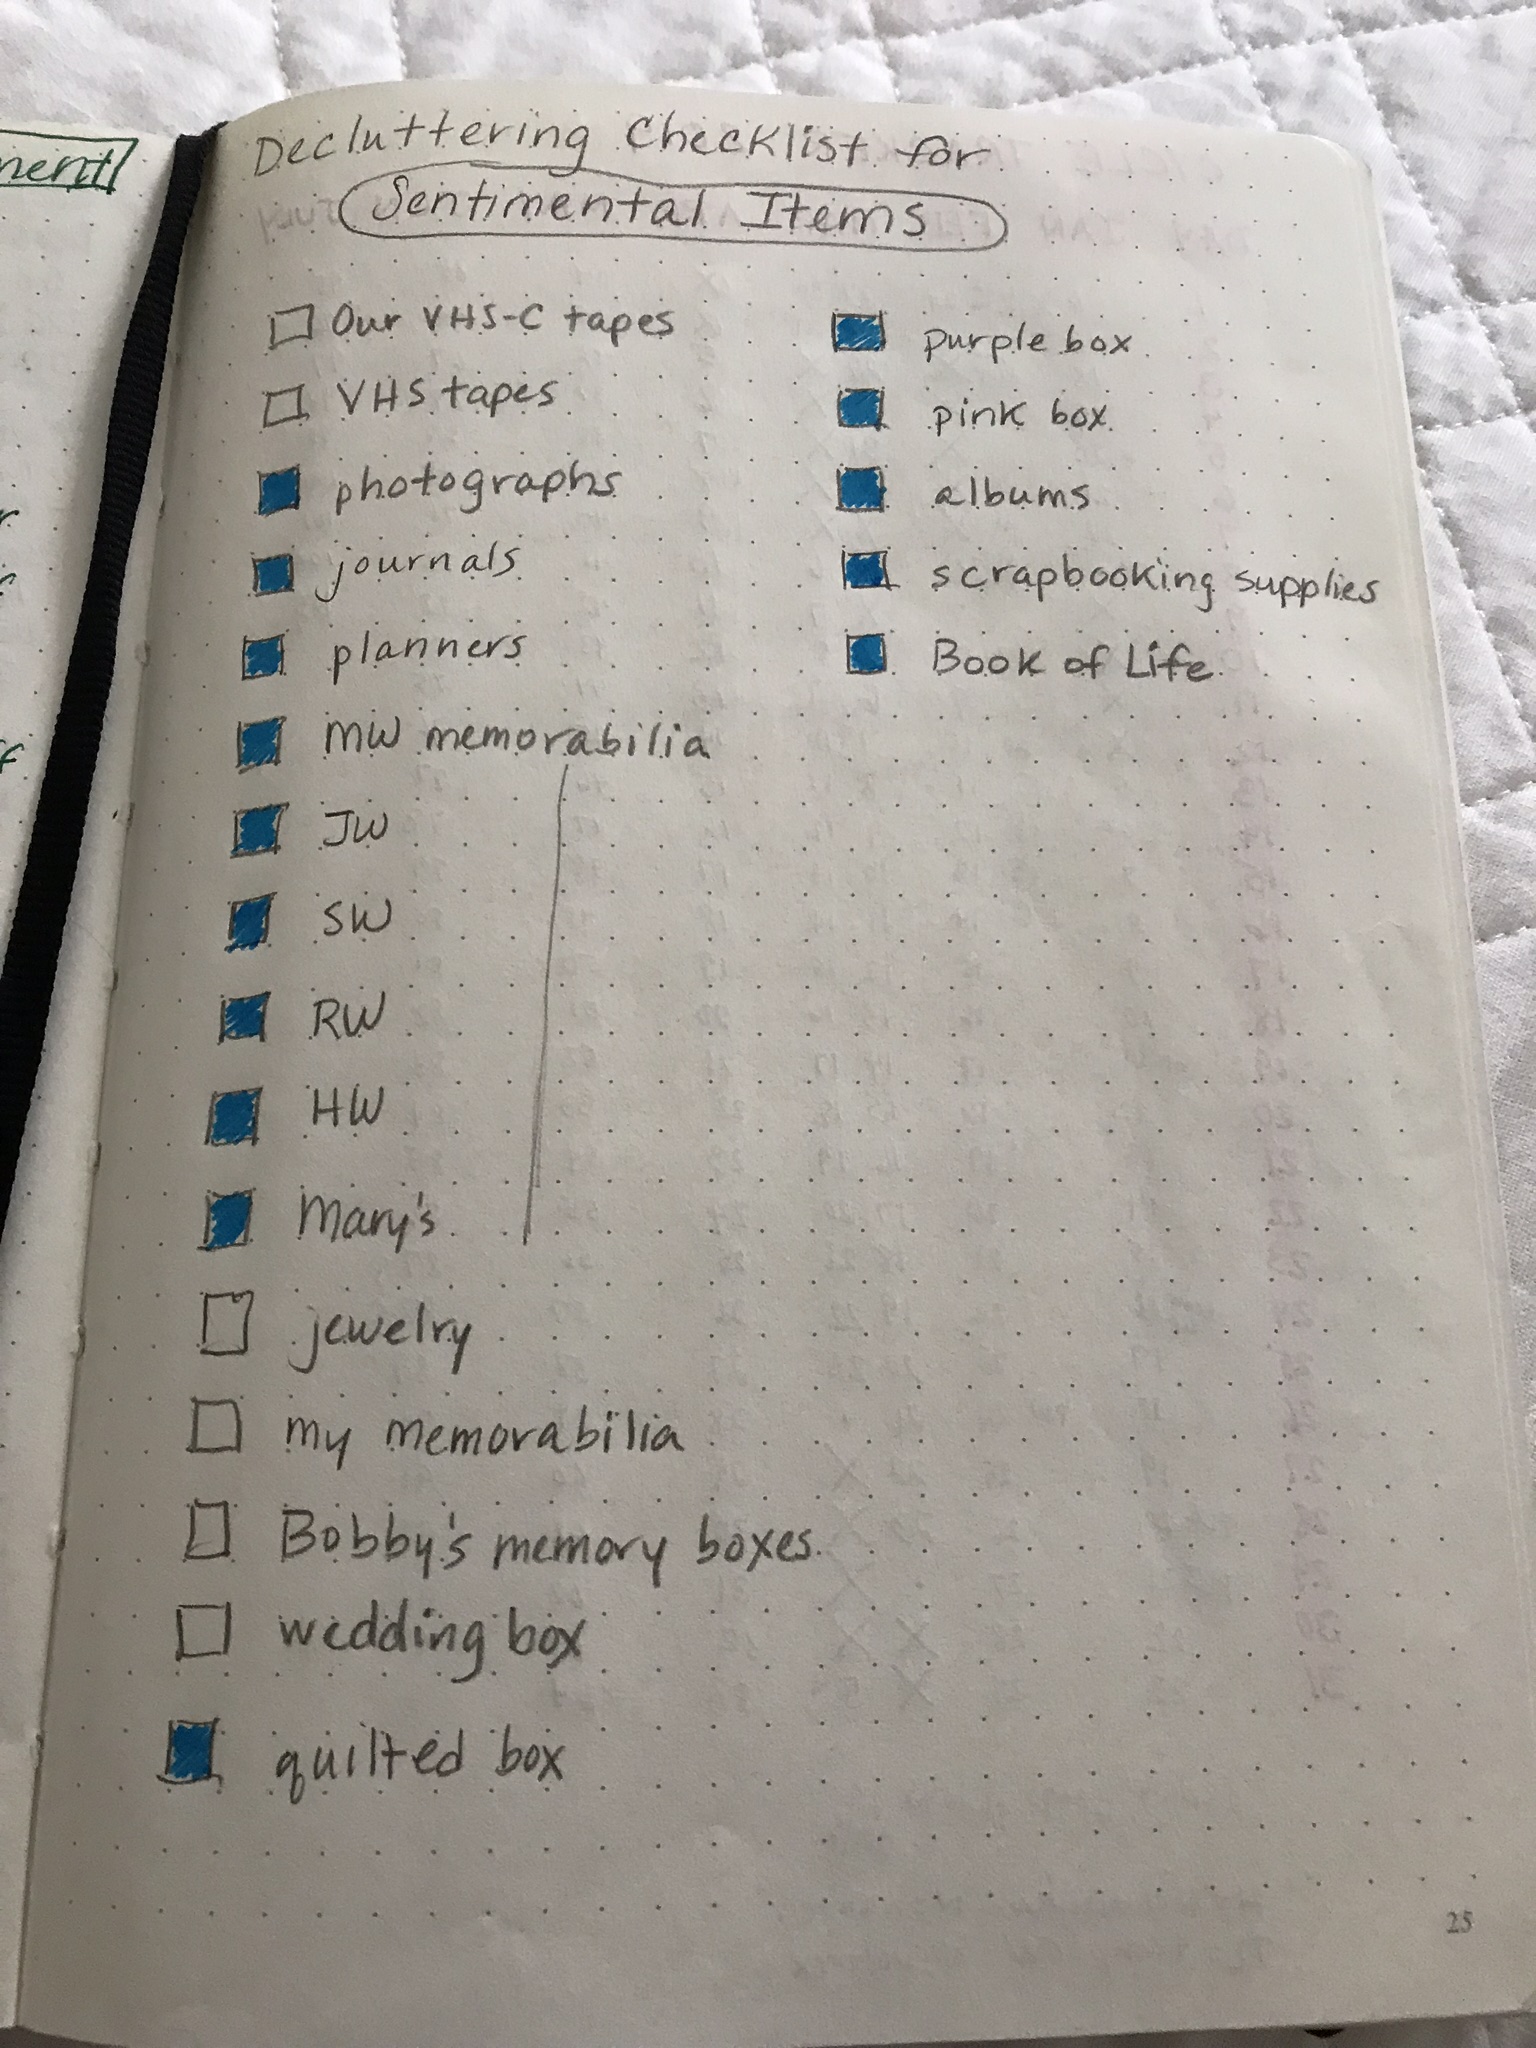 Decluttering Checklist for
Sentimental Items
Our VHS-C tapes
VHS tapes
photographs
journals
planners
MW memorabilia
JW
SW
RW
HW
Mary's
jewelry
my memorabilia
Bobby's memory boxes
wedding box
quilted box
purple box
pink box
albums
scrapbooking supplies
Book of Life
25